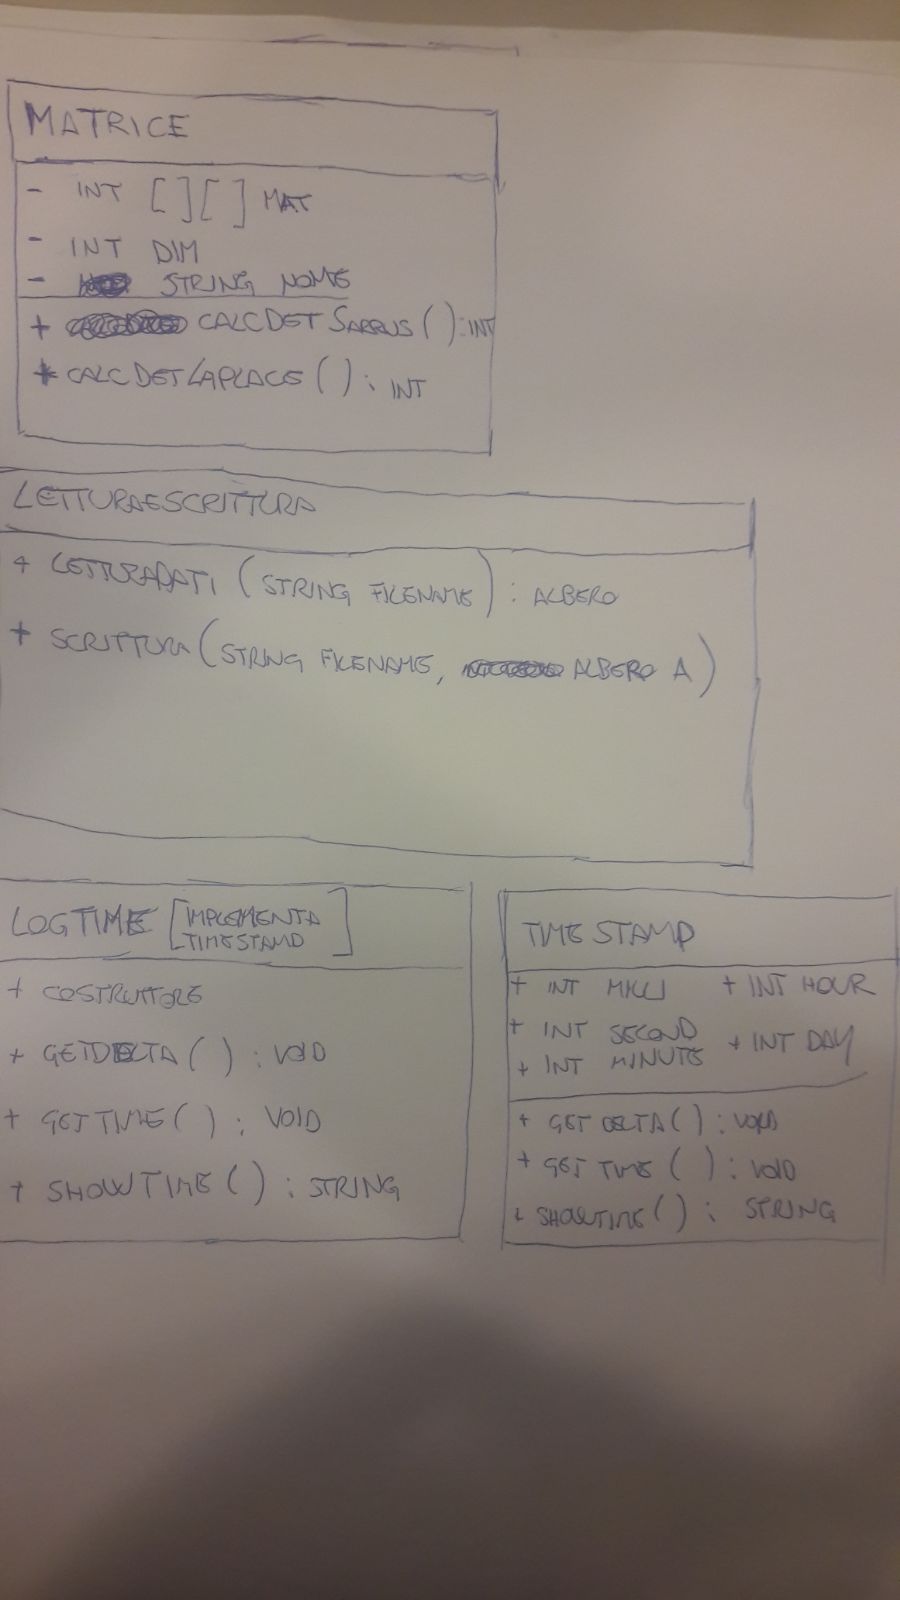 MATRICE
- INT [ ][ ] MAT
- INT DIM
- STRING NOME
+ CALCDETSARRUS ( ): INT
+ CALCDETLAPLACE ( ) : INT
LETTURAESCRITTURA
+ LETTURADATI (STRING FILENAME) : ALBERO
+ SCRITTURA (STRING FILENAME, ALBERO A)
LOGTIME [IMPLEMENTA
TIMESTAMP]
+ COSTRUTTORE
+ GETDELTA ( ) : VOID
+ GETTIME ( ) : VOID
+ SHOWTIME ( ) : STRING
TIMESTAMP
+ INT MILLI + INT HOUR
+ INT SECOND + INT DAY
+ INT MINUTE
+ GETDELTA ( ) : VOID
+ GETTIME ( ) : VOID
+ SHOWTIME ( ) : STRING